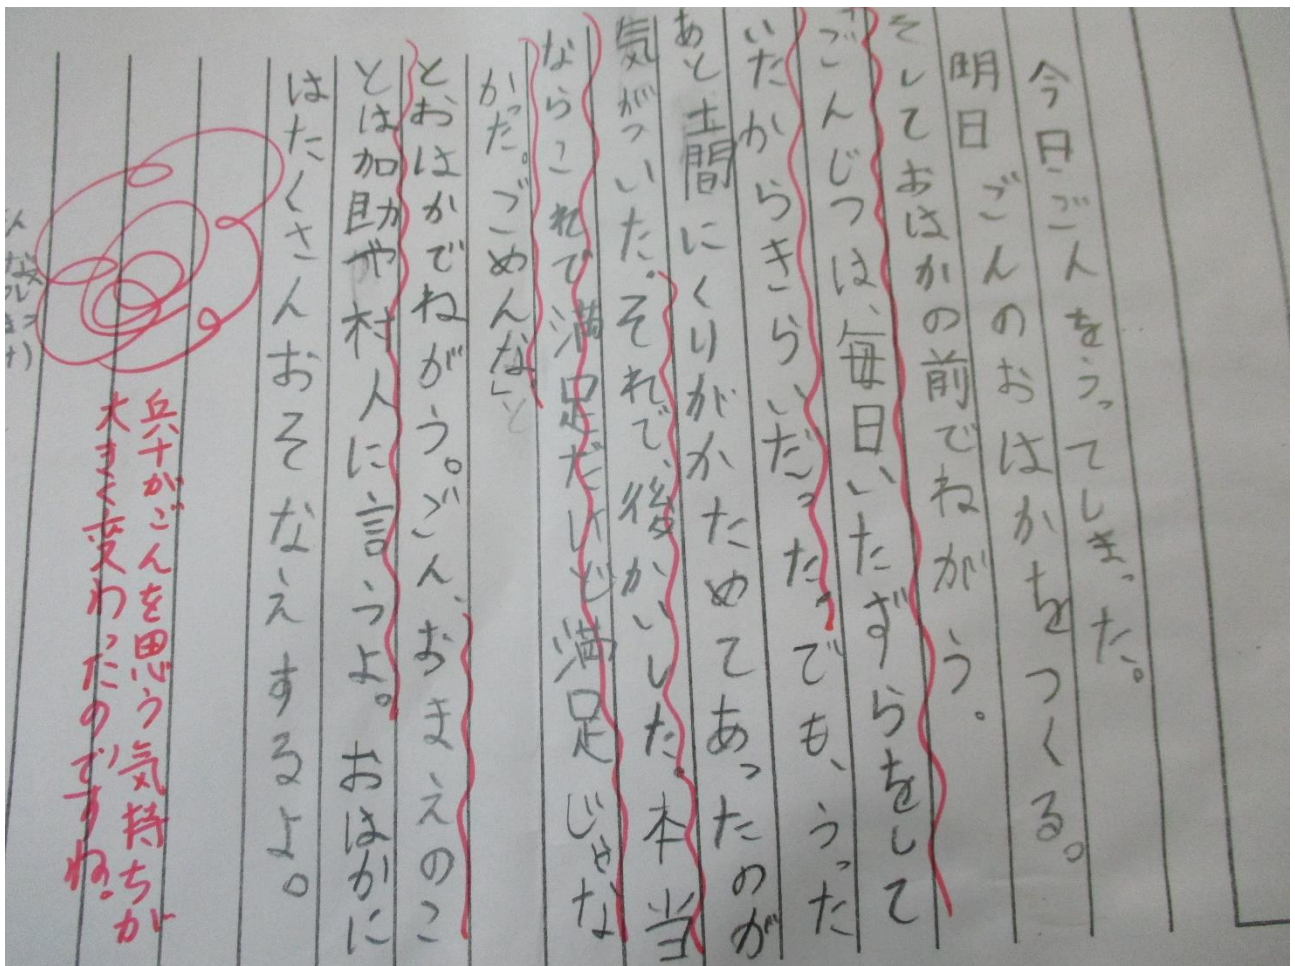 今日ごんをうってしまった。
明日ごんのおはかをつくる。
そしておはかの前でねがう。
「ごんじつは、毎日いたずらをして
いたからきらいだった。でも、うった
あと土間にくりがかためてあったのが
気がついた。それで、後かいした。本当
ならこれで満足だけど満足じゃな
かった。ごめんな。」と
とおはかでねがう。ごん、おまえのこ
とは加助や村人に言うよ。おはかに
はたくさんおそなえするよ。
兵十がごんを思う気持ちが
大きく変わったのですね。